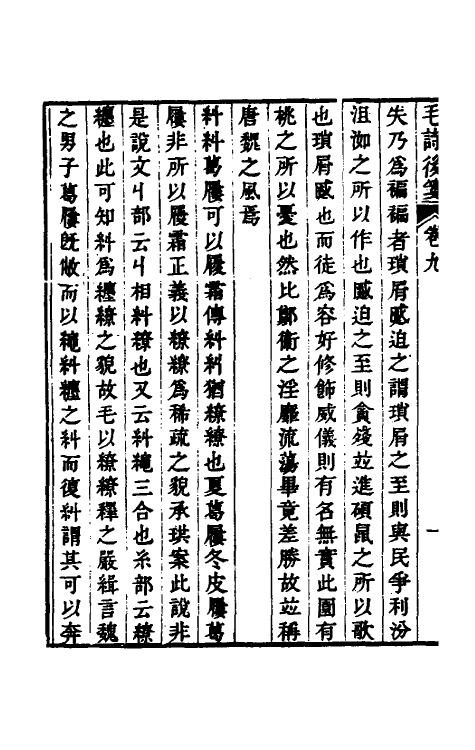 毛詩後箋 卷九 一
失乃爲褊褊者瑣屑慼迫之謂瑣屑之至則與民爭利汾
沮洳之所以作也慼迫之至則貪殘竝進碩鼠之所以歌
也瑣屑慼也而徒爲容好修飾威儀則有名無實此園有
桃之所以憂也然比鄭衞之淫靡流蕩畢竟差勝故竝稱
唐魏之風焉
糾糾葛屨可以履霜傳糾糾猶繚繚也夏葛屨冬皮屨葛
屨非所以履霜正義以繚繚爲稀疏之貌承珙案此說非
是說文丩部云丩相糾繚也又云糾繩三合也糸部云繚
纏也此可知糾爲纏繚之貌故毛以繚繚釋之嚴緝言魏
之男子葛屨旣敝而以繩糾纏之糾而復糾謂其可以奔